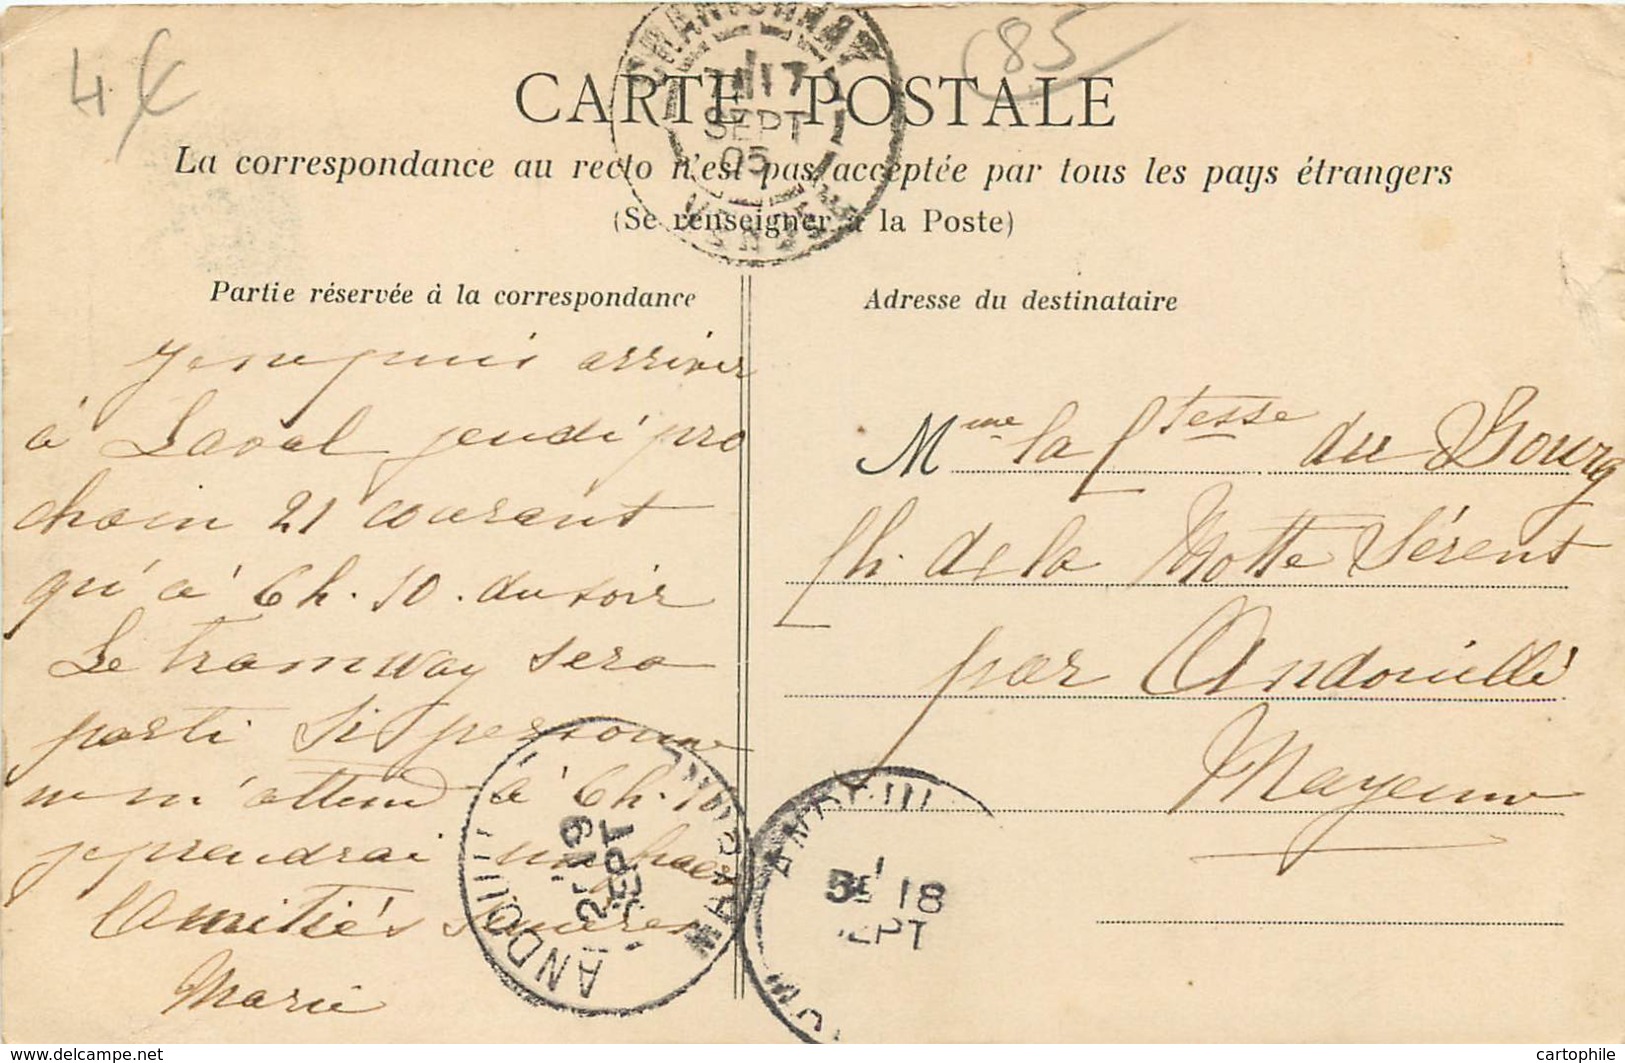 4€
85
CHANTONNAY
17
SEPT
05
VENDÉE
CARTE POSTALE
La correspondance au recto n'est pas acceptée par tous les pays étrangers
(Se renseigner à la Poste)
Partie réservée à la correspondance
Je ne puis arriver
à Laval jeudi pro
chain 21 courant
qu'à 6h.10. du soir
Le tramway sera
parti si personne
ne m'attend à 6h.10
je prendrai un fiacre
Amitiés sincères
Marie
ANDOUILLÉ
19
SEPT
MAYENNE
Adresse du destinataire
Mme la Ctesse du Bourg
Ch. de la Motte Sérent
par Andouillé
Mayenne
18
SEPT
www.delcampe.net
cartophile